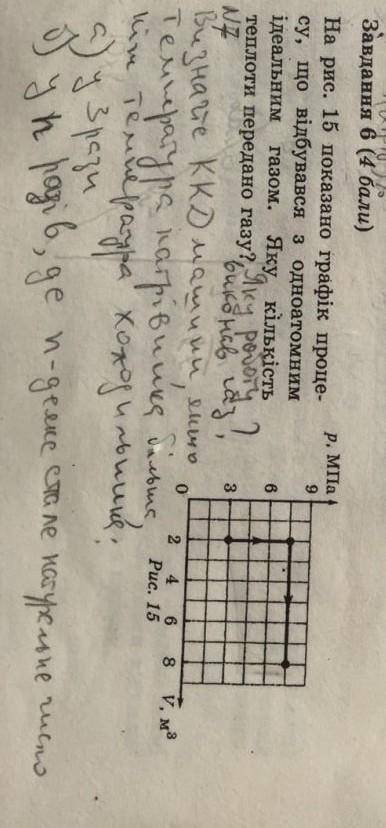 Завдання 6 (4 бали)
На рис. 15 показано графік проце-
су, що відбувався з одноатомним
ідеальним газом. Яку кількість
теплоти передано газу? Яку роботу
виконав газ?
N7
Визначте ККД машини, якщо
температура нагрівника більша
ніж температура холодильника,
а) у 3 рази
б) у n разів, де n-деяке стале натуральне число
p, МПа
9
6
3
0
2
4
6
8
V, м³
Рис. 15